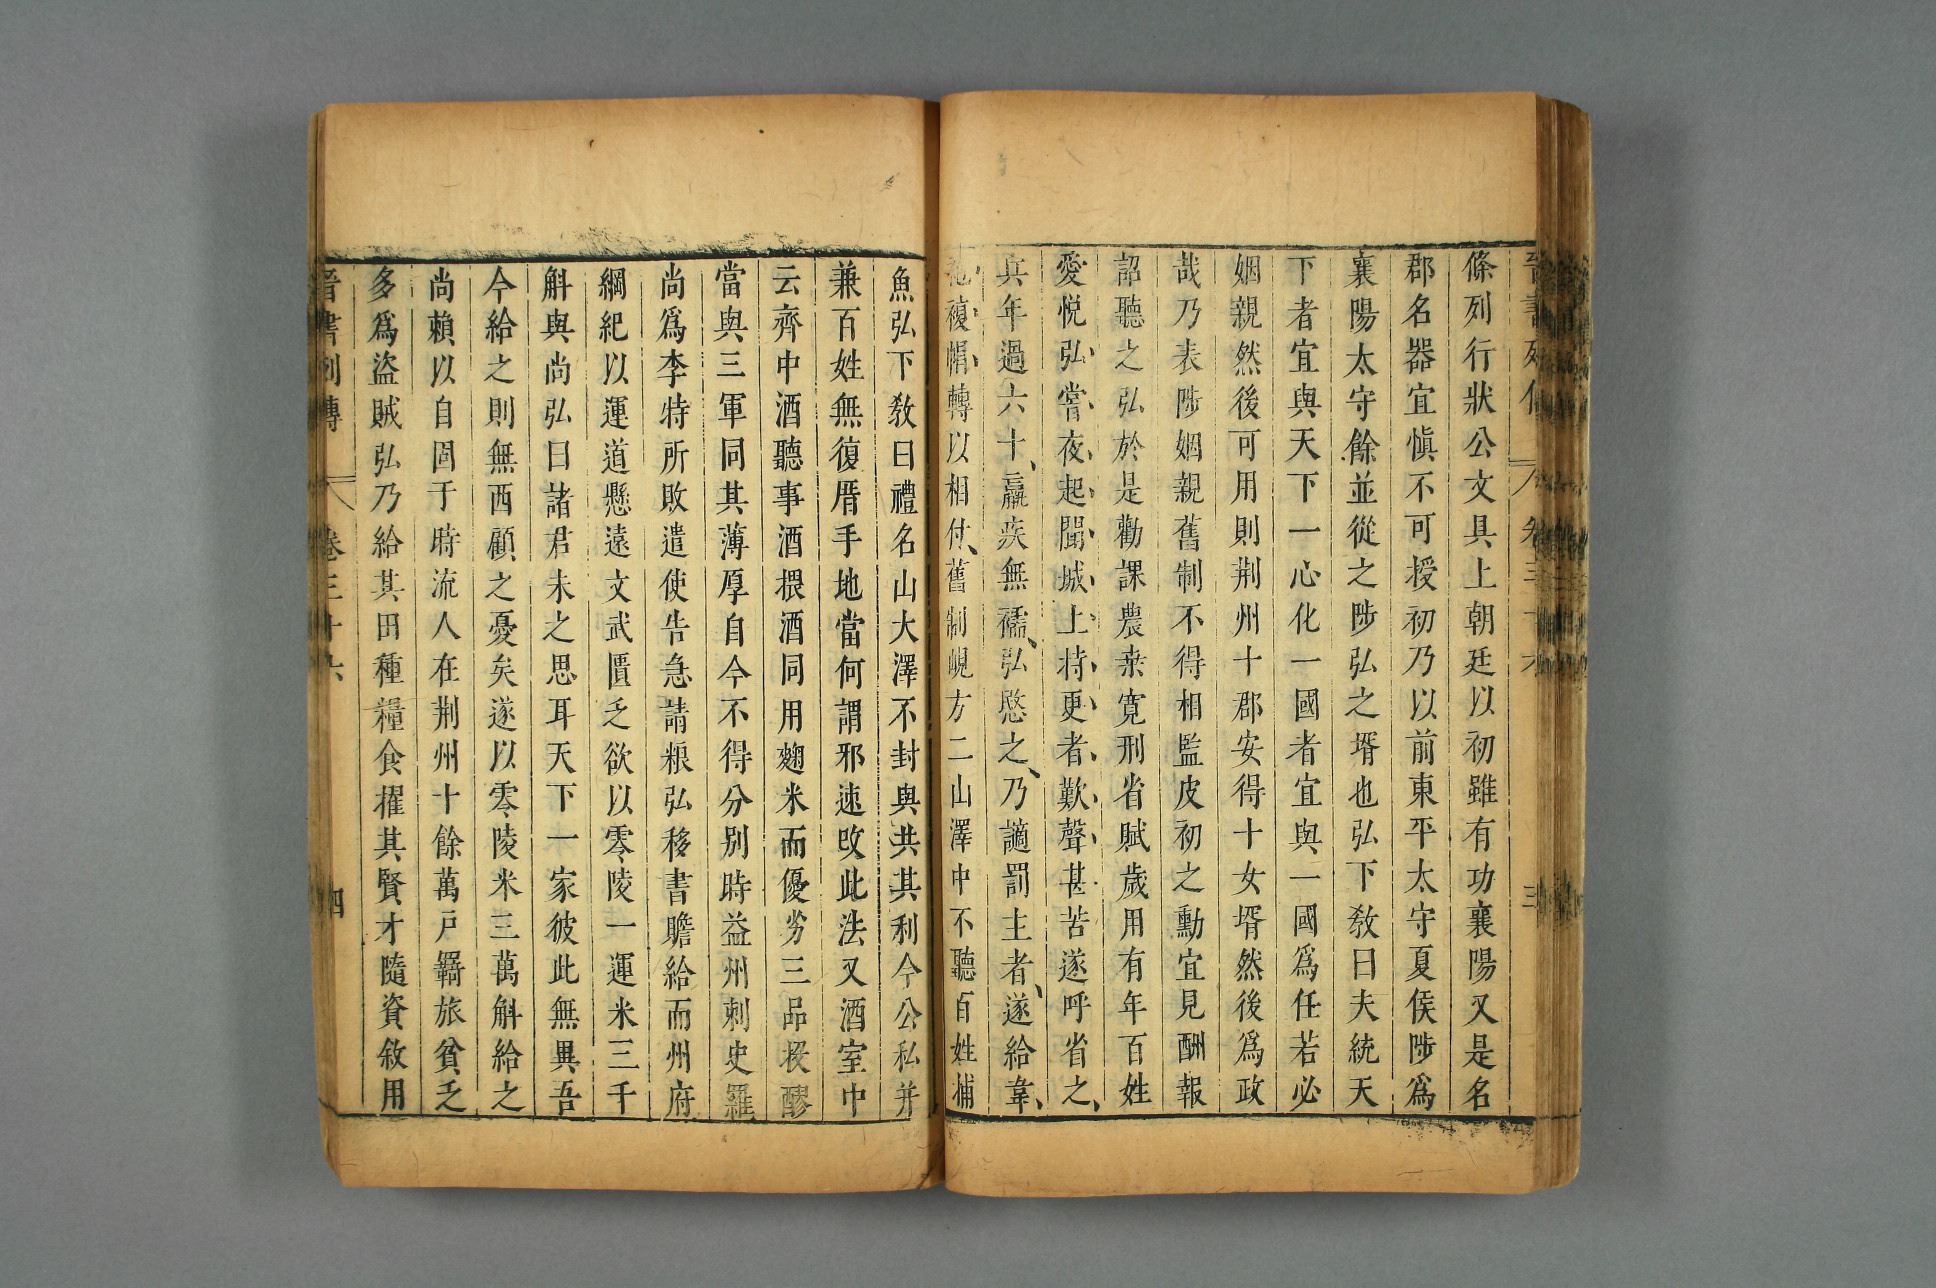 晉書列傳 卷三十六 三
條列行狀公文具上朝廷以初雖有功襄陽又是名
郡名器宜愼不可授初乃以前東平太守夏侯陟爲
襄陽太守餘並從之陟弘之壻也弘下敎曰夫統天
下者宜與天下一心化一國者宜與一國爲任若必
姻親然後可用則荆州十郡安得十女壻然後爲政
哉乃表陟姻親舊制不得相監皮初之勳宜見酬報
詔聽之弘於是勸課農桒寛刑省賦歲用有年百姓
愛悅弘嘗夜起聞城上持更者歎聲甚苦遂呼省之
兵年過六十羸疾無襦弘愍之乃讁罰主者遂給韋
袍複帽轉以相付舊制峴方二山澤中不聽百姓捕
魚弘下敎曰禮名山大澤不封與共其利今公私并
兼百姓無復厝手地當何謂邪速改此法又酒室中
云齊中酒聽事酒猥酒同用麴米而優劣三品投醪
當與三軍同其薄厚自今不得分別時益州刺史羅
尚爲李特所敗遣使告急請粮弘移書贍給而州府
綱紀以運道懸遠文武匱乏欲以零陵一運米三千
斛與尚弘曰諸君未之思耳天下一家彼此無異吾
今給之則無西顧之憂矣遂以零陵米三萬斛給之
尚賴以自固于時流人在荆州十餘萬戶羇旅貧乏
多爲盜賊弘乃給其田種糧食擢其賢才隨資敘用
晉書列傳 卷三十六 四